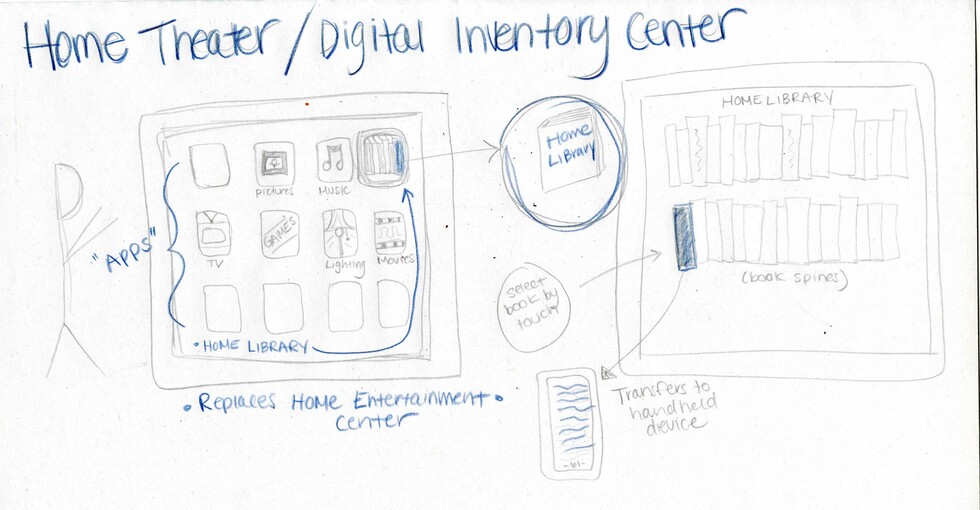 Home Theater / Digital Inventory Center
"APPS"
Pictures
Music
TV
GAMES
Lighting
Movies
• HOME LIBRARY
• Replaces Home Entertainment •
Center
Home
Library
select
book by
touch
HOME LIBRARY
(book spines)
Transfers to
handheld
device